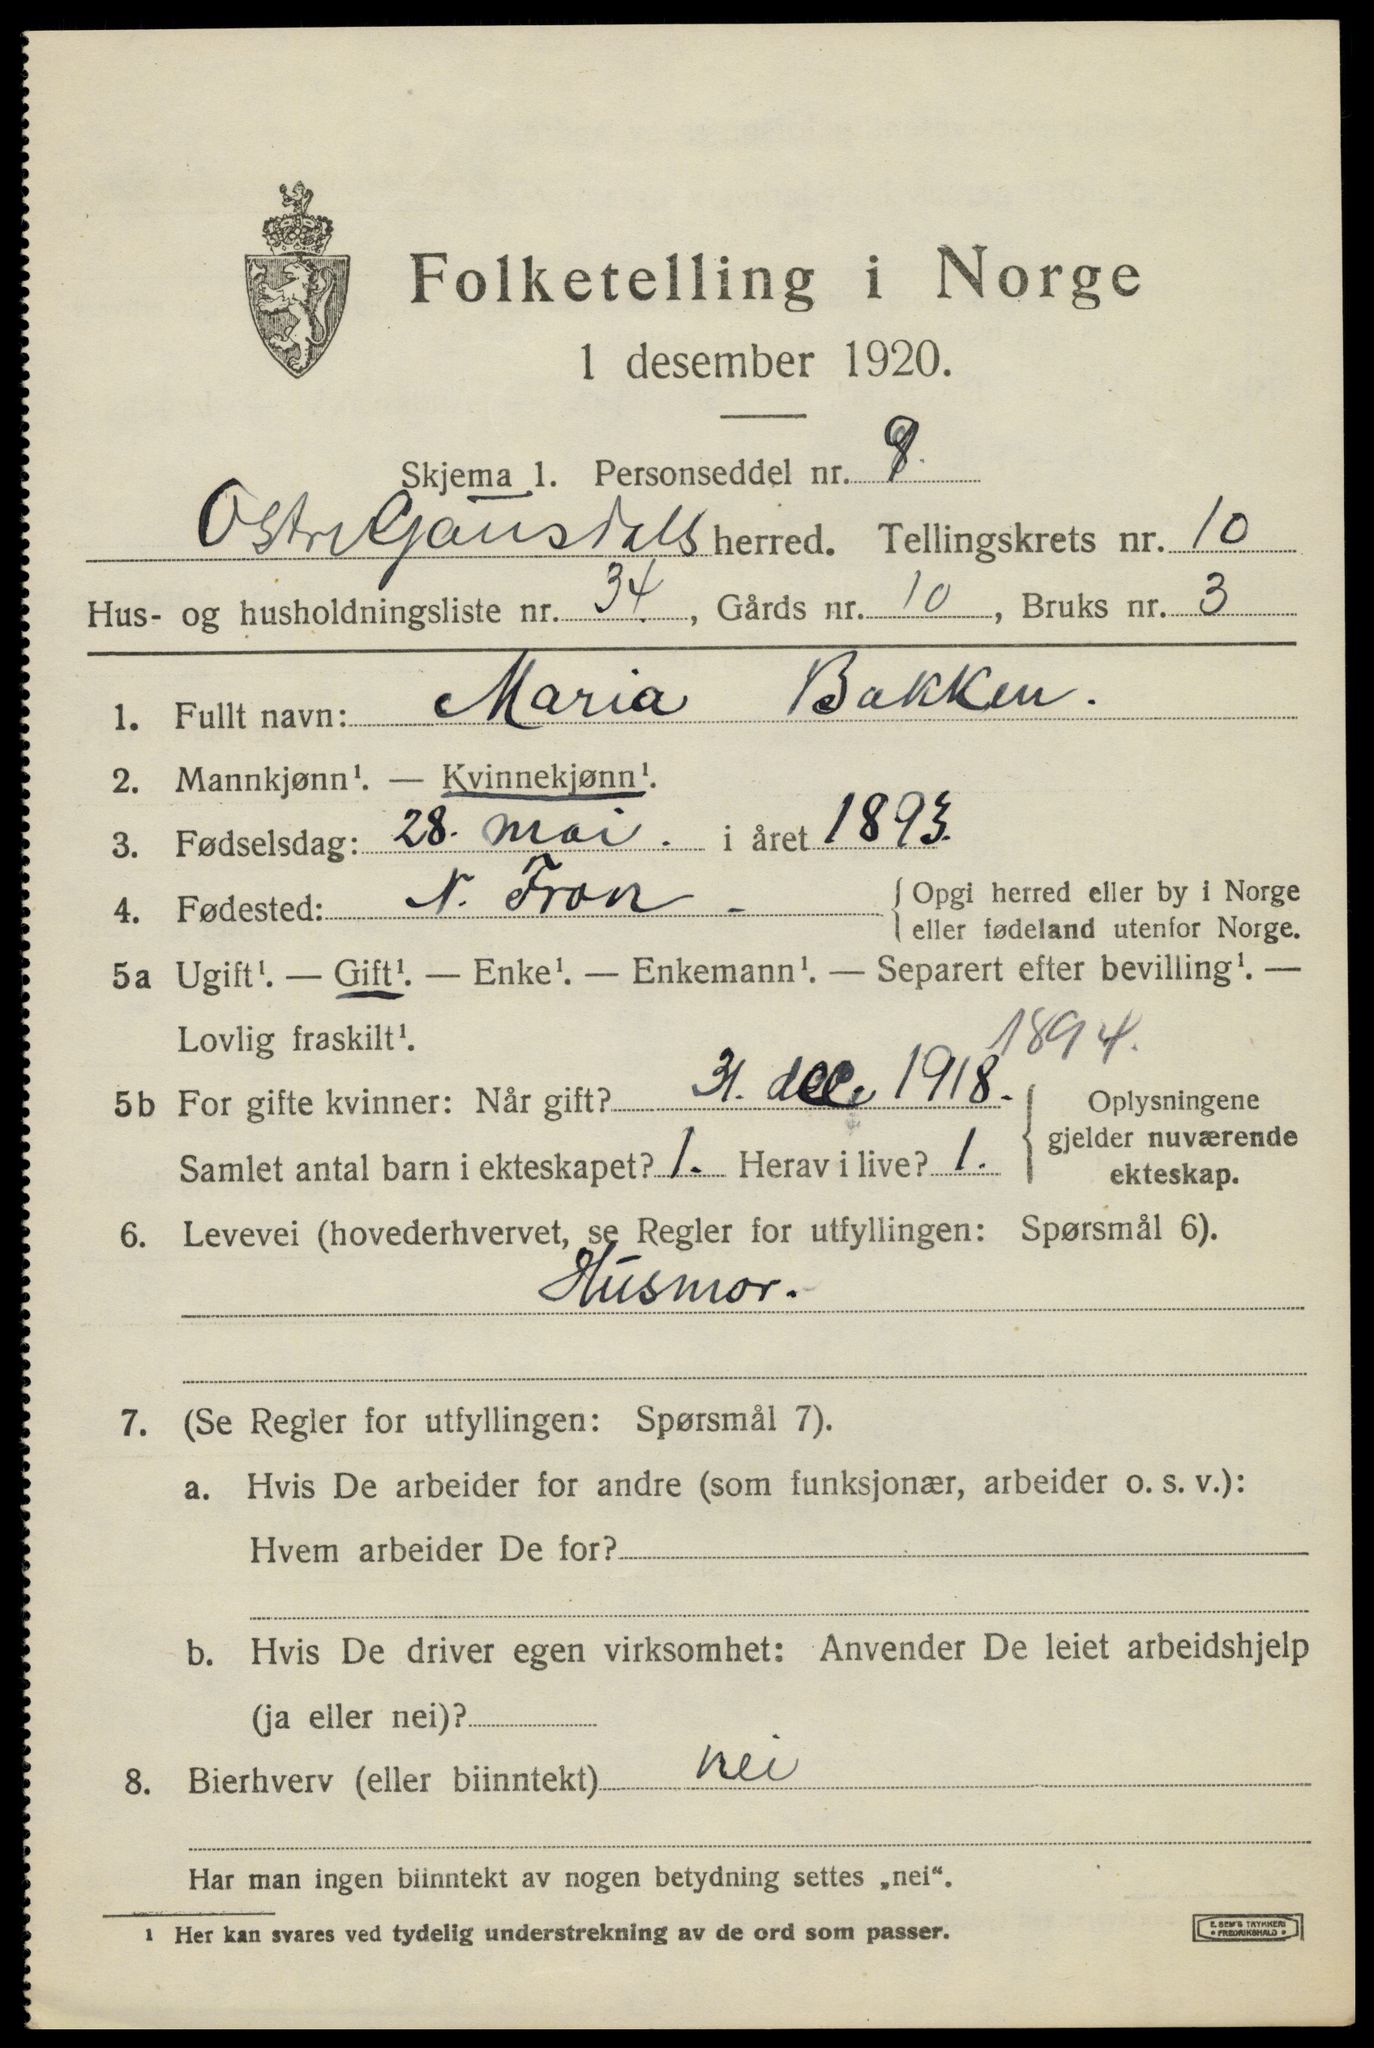 Folketelling i Norge
1 desember 1920.
Skjema 1. Personseddel nr.
Østre Gausdals herred. Tellingskrets nr. 10
Hus- og husholdningsliste nr. 34, Gårds nr. 10, Bruks nr. 3
1. Fullt navn: Maria Bakken.
2. Mannkjønn¹. — Kvinnekjønn¹.
3. Fødselsdag: 28. mai. i året 1893.
4. Fødested: N. Fron - { Opgi herred eller by i Norge
eller fødeland utenfor Norge.
5a Ugift¹. — Gift¹. — Enke¹. — Enkemann¹. — Separert efter bevilling¹. —
Lovlig fraskilt¹.
1894.
5b For gifte kvinner: Når gift? 31. dec. 1918. { Oplysningene
gjelder nuværende
Samlet antal barn i ekteskapet? 1. Herav i live? 1.
ekteskap.
6. Levevei (hovederhvervet, se Regler for utfyllingen: Spørsmål 6).
Husmor.
7. (Se Regler for utfyllingen: Spørsmål 7).
a. Hvis De arbeider for andre (som funksjonær, arbeider o. s. v.):
Hvem arbeider De for?
b. Hvis De driver egen virksomhet: Anvender De leiet arbeidshjelp
(ja eller nei)?
8. Bierhverv (eller biinntekt) nei
Har man ingen biinntekt av nogen betydning settes „nei“.
¹ Her kan svares ved tydelig understrekning av de ord som passer.
E. SEM'S TRYKKERI
• FREDRIKSHALD •